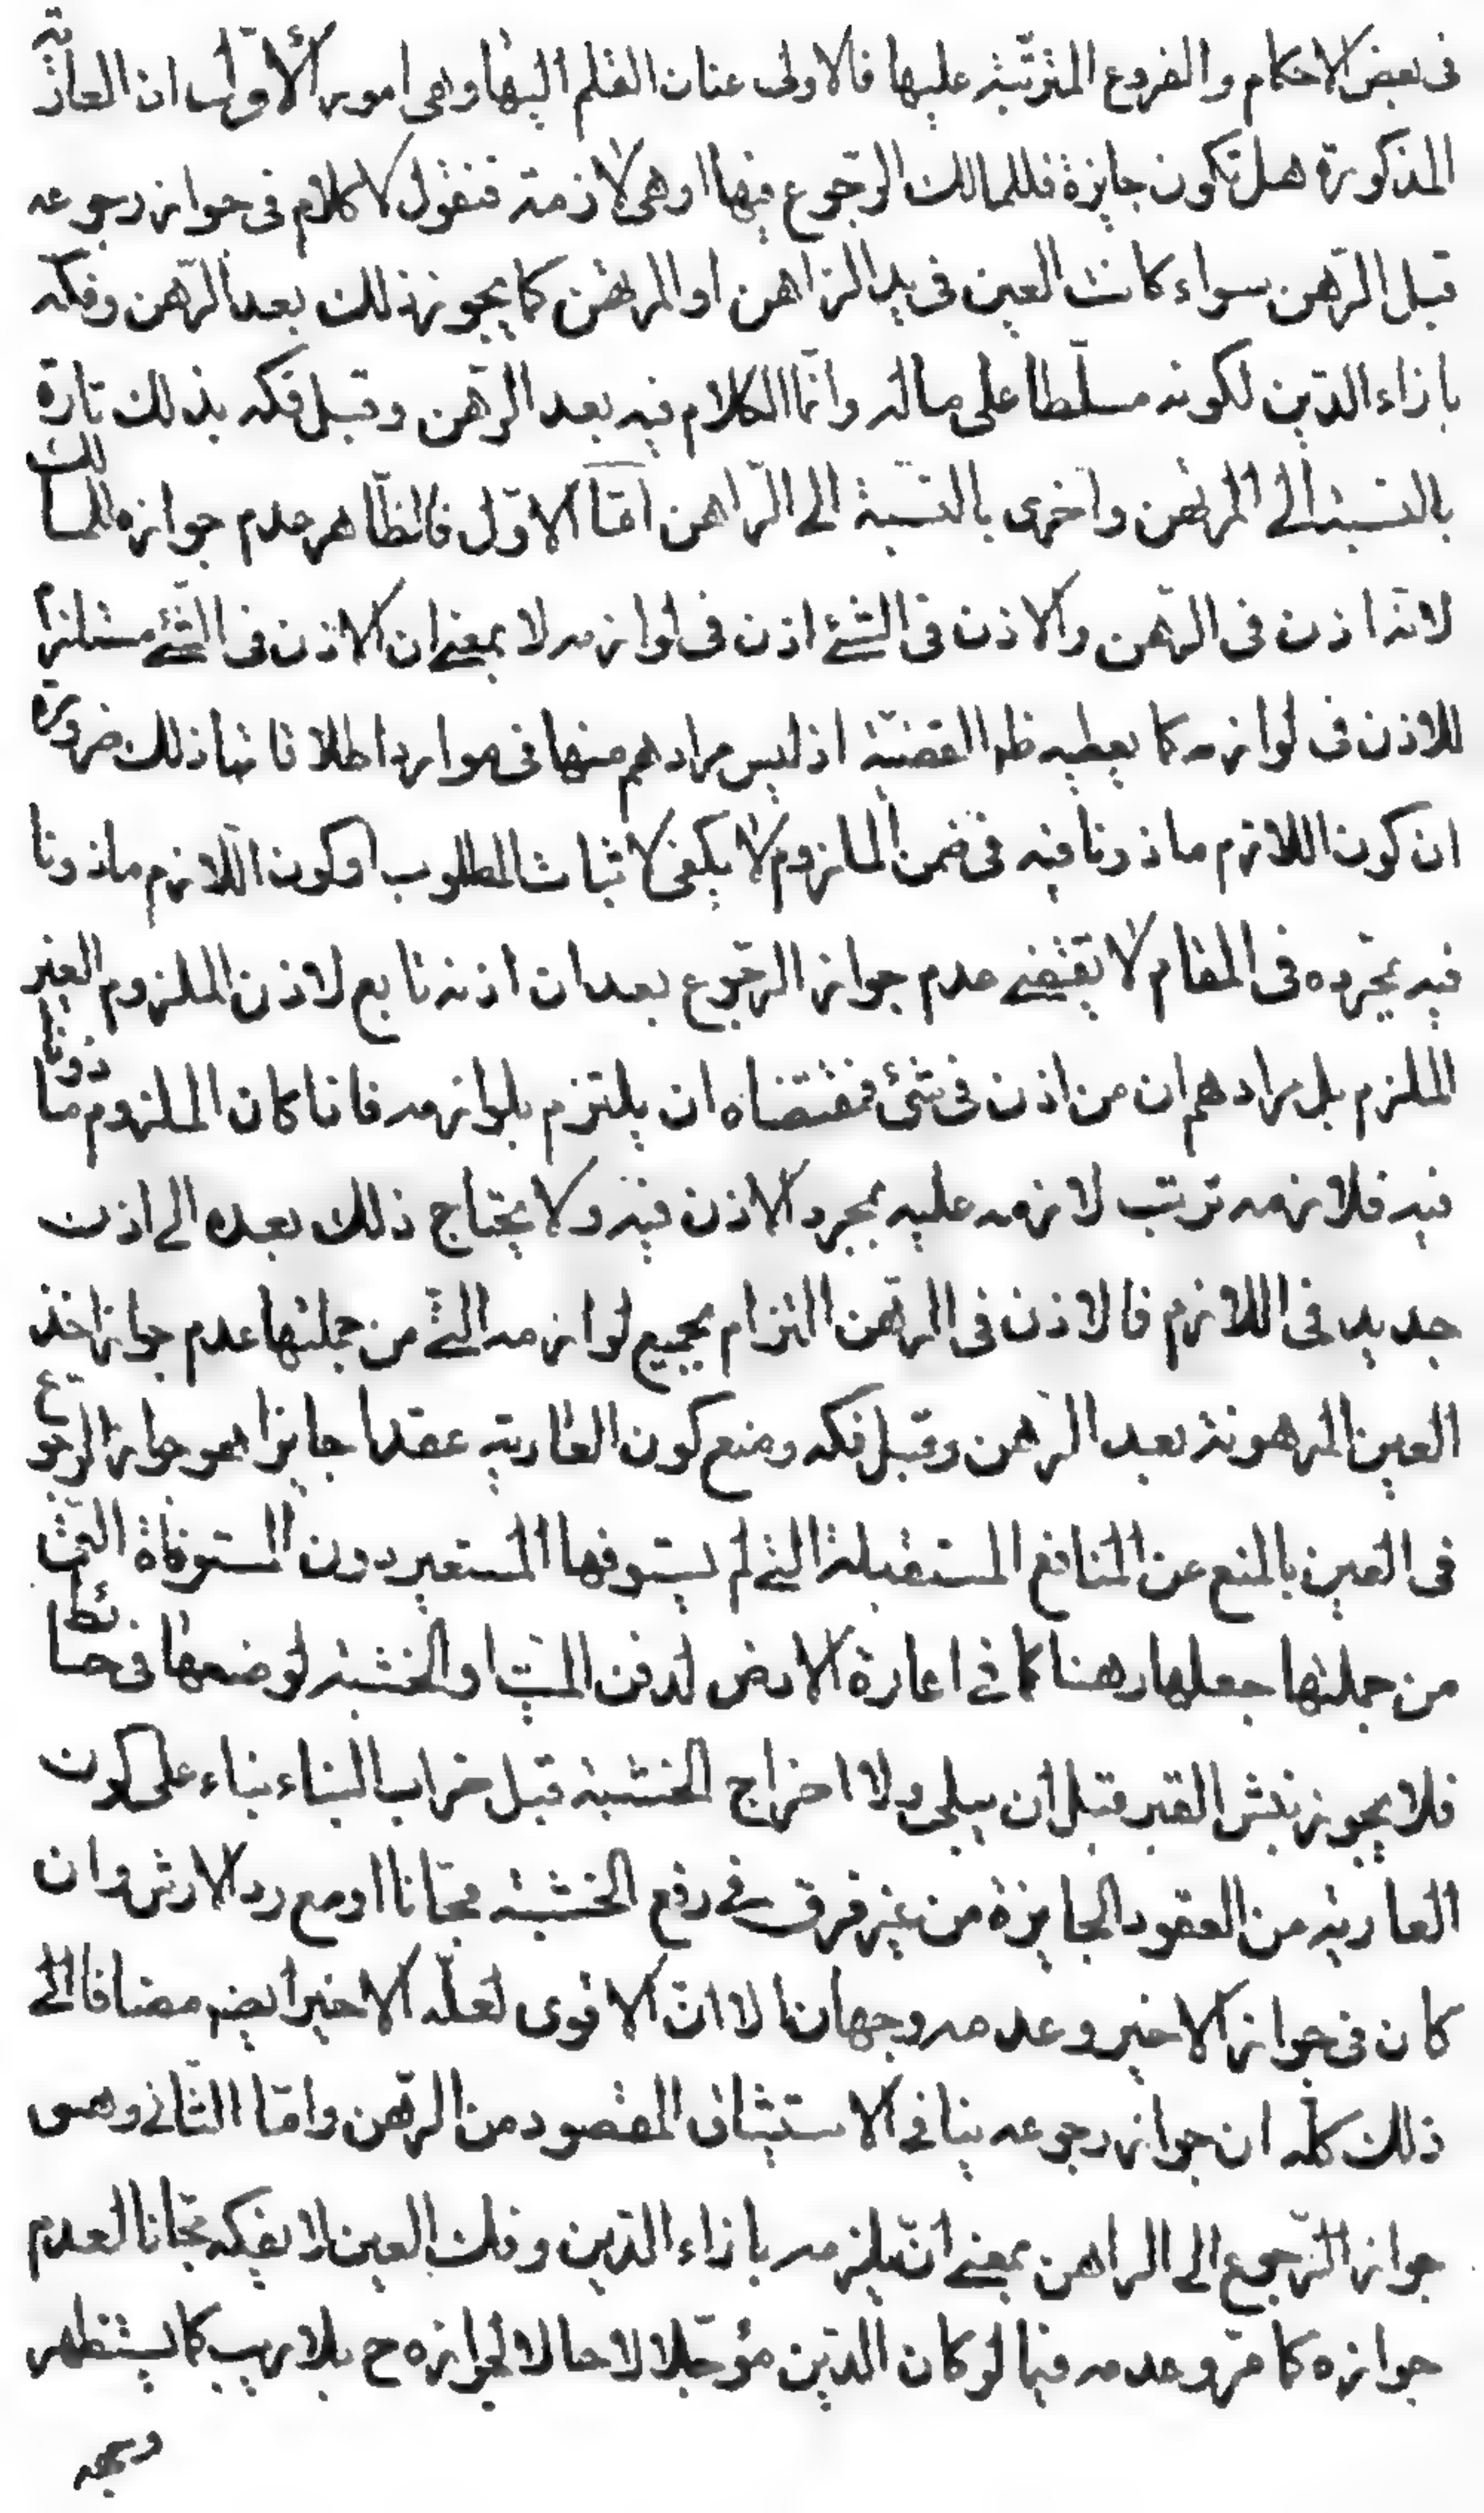 فى بعض الاحكام والفروع المترتبة عليها فالاولى عنان القلم اليها وهى امور الأول ان العارية
المذكورة هل تكون جايزة فللمالك الرّجوع فيها او هى لازمة فنقول لا كلام فى جواز رجوعه
قبل الرّهن سواء كانت العين فى يد الراهن او المرتهن كما يجوز ذلك بعد الرّهن وفكّه
بازاء الدّين لكونه مسلّطا على ماله وانّما الكلام فيه بعد الرّهن وقبل فكه بذلك تارة
بالنسبة الى المرتهن واخرى بالنّسبة الى الرّاهن امّا الاوّل فالظّاهر عدم جوازه للمالك
لانّه اذن فى الرّهن والاذن فى الشئ اذن فى لوازمه لا بمعنى ان الاذن فى الشّئ مستلزم
للاذن فى لوازمه كما يعطيه ظه القضيّة اذ ليس مرادهم منها فى موارد اطلاقاتها ذلك ضرورة
ان كون اللازم ماذونا فيه فى ضمن الملزوم لا يكفى لاثبات المطلوب اذ كون اللّازم ماذونا
فيه بمجرّده فى المقام لا يقتضى عدم جواز الرّجوع بعد ان اذنه تابع لاذن الملزوم الغير
الملزم بل مرادهم ان من اذن فى شئ فمقتضاه ان يلتزم بلوازمه فاذا كان الملزوم ماذونا
فيه فلازمه ترتب لازمه عليه بمجرد الاذن فيه ولا يحتاج ذلك بعده الى اذن
جديد فى اللازم فالاذن فى الرّهن التزام بجميع لوازمه الّتى من جملتها عدم جواز اخذ
العين المرهونة بعد الرّهن وقبل فكه ومنع كون العارية عقدا جايزا هو جواز الرجوع
فى العين بالمنع عن المنافع المستقبلة التى لم يستوفها المستعير دون المستوفاة الّتى
من جملتها جعلها رهنا كما فى اعارة الارض لدفن الميّت او الخشبة لوضعها فى حائط
فلا يجوز نبش القبر قبل ان يبلى ولا اخراج الخشبة قبل خراب البناء بناء على كون
العارية من العقود الجايزة من غير فرق فى رفع الخشبة مجّانا او مع رد الارش وان
كان فى جواز الاخير وعدمه وجهان الا انّ الاقوى لعلّه الاخير ايضه مضافا الى
ذلك كلّه ان جواز رجوعه ينافى الاستيثاق المقصود من الرّهن وامّا الثّانى وهو
جواز الرّجوع الى الراهن بمعنى ان يلزمه بازاء الدّين وفك العين لا بفكه مجّانا لعدم
جوازه كما مرّ وعدمه فيما لو كان الدّين مؤجّلا لا حالا لجوازه ح بلا ريب كما يستظهر